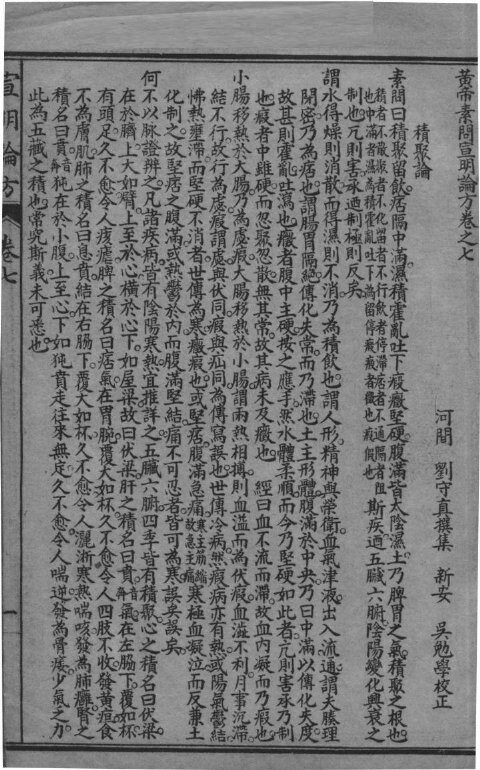 黃帝素問宣明論方卷之七
河間 劉守真撰集 新安 吳勉學校正
積聚論
素問曰積聚留飲痞隔中滿濕積霍亂吐下癥瘕堅硬腹滿皆太陰濕土乃脾胃之氣積聚之根也
積者不散聚者不化留者不行飲者停滯痞者不通隔者阻也中滿者濕為積霍亂吐下為留停瘕癥者徵也瘕假也斯疾迺五臟六腑陰陽變化興衰之
制也亢則害承迺制極則反矣
謂水得燥則消散而得濕則不消乃為積飲也謂人形精神與榮衛血氣津液出入流通謂夫腠理
閉密乃為痞也謂腸胃隔絕傳化失常而乃滯也土主形體腹滿於中央乃曰中滿以傳化失度
故甚則霍亂吐瀉也癥者腹中主硬按之應手然水體柔順而今乃堅硬如此者亢則害承乃制
也瘕者中雖硬而忽聚忽散無其常故其病未及癥也 經曰血不流而滯故血內凝而乃瘕也
小腸移熱於大腸乃為虙瘕大腸移熱於小腸謂兩熱相摶則血溢而為伏瘕血澁不利月事沉滯
結不行故行為虙瘕謂虙與伏同瘕與疝同為傳寫誤也世傳冷病然瘕病亦有熱或陽氣鬱結
怫熱壅滯而堅硬不消者世傳為寒癥瘕也或堅痞腹滿急痛寒主筋縮故急主痛寒極血凝泣而反兼土
化制之故堅痞之腹滿或熱鬱於內而腹滿堅結痛不可忍者皆可為寒誤矣誤矣
何不以脉證辨之凡諸疾病皆有陰陽寒熱宜推詳之五臟六腑四季皆有積聚心之積名曰伏梁
在於臍上大如臂上至於心橫於心下如屋梁故曰伏梁肝之積名曰賁音奔氣在左脇下覆如杯
有頭足久不愈令人痎瘧脾之積名曰痞氣在胃脘覆大如杯久不愈令人四肢不收發黃疸食
不為膚肌肺之積名曰息賁結在右脇下覆大如杯久不愈令人灑淅寒熱喘咳發為肺癰腎之
積名曰賁音奔㹠在於小腹上至心下如㹠賁走往來無定久不愈令人喘逆發為骨痿少氣之力
此為五臟之積也常究斯義未可悉也
宣明論方
卷七
一